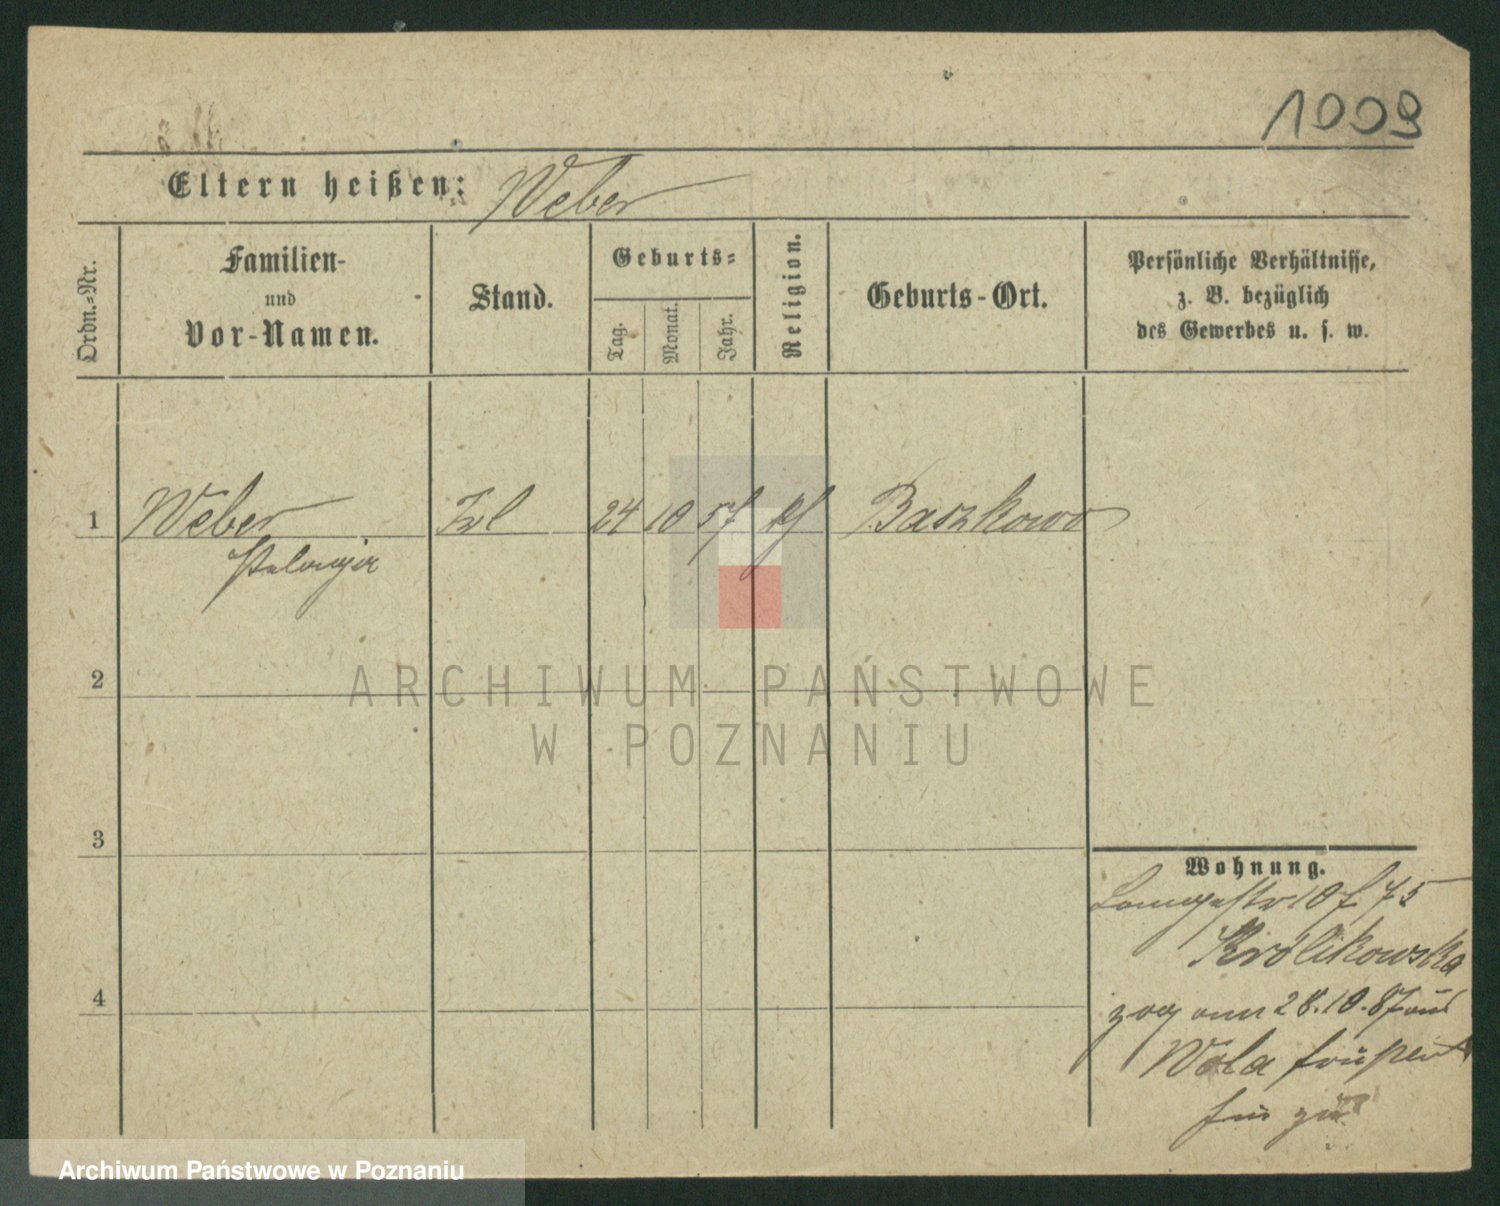 1009
Eltern heißen: Weber
Ordn.-Nr.
Familien-
und
Vor-Namen.
Stand.
Geburts-
Tag.
Monat.
Jahr.
Religion.
Geburts-Ort.
Persönliche Verhältnisse,
z. B. bezüglich
des Gewerbes u. s. w.
1 Weber 24 10 57 Baszkowo
Pelagia
2
ARCHIWUM PAŃSTWOWE
W POZNANIU
3
Wohnung.
Langestr 10 b. 75
Krolikowska
4
zog am 28.10.87 aus
Wola
hier zu
Archiwum Państwowe w Poznaniu